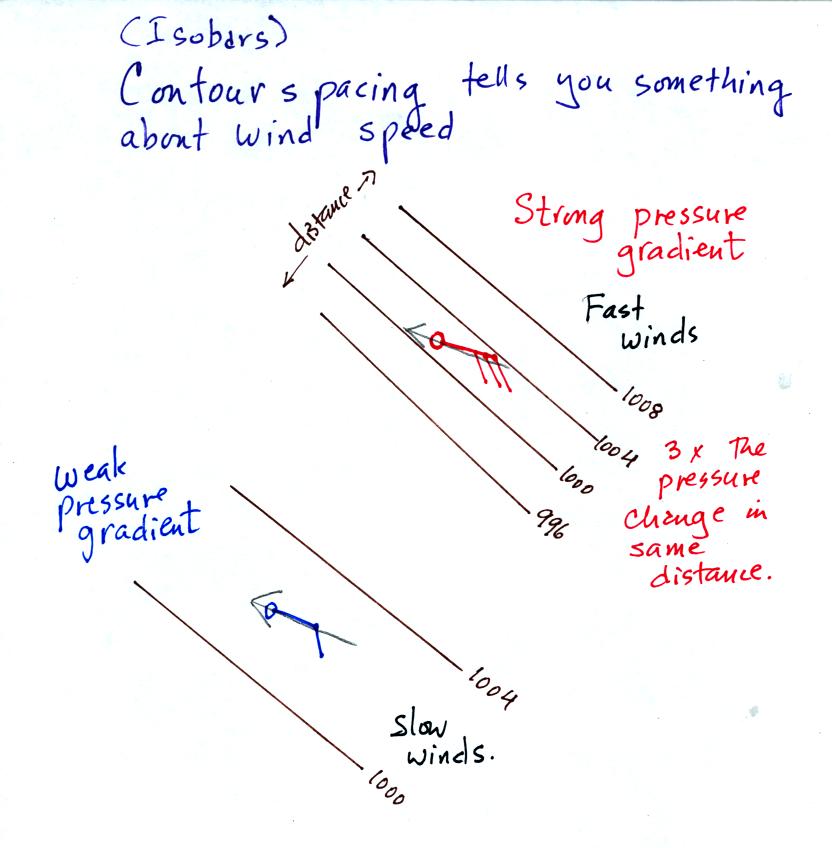 (Isobars)
Contour spacing tells you something
about wind speed
distance
Strong pressure
gradient
Fast
winds
1008
1004
1000
996
3 x The
pressure
change in
same
distance.
weak
pressure
gradient
1004
1000
slow
winds.